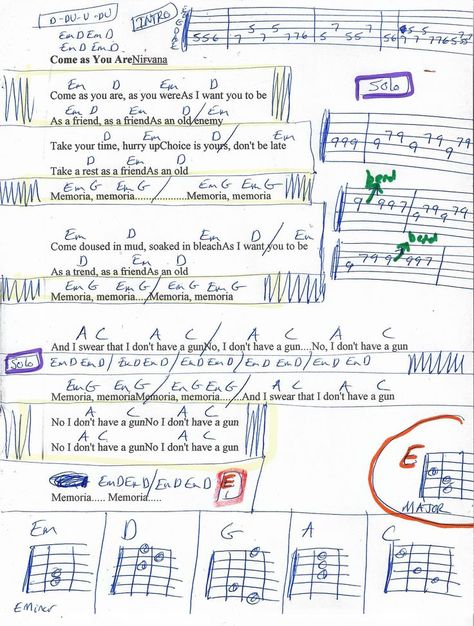 D-DU-U-DU
INTRO
Em D Em D
Em D Em D
Come as You AreNirvana
Em D Em D
Come as you are, as you wereAs I want you to be
Em D Em D / Em
As a friend, as a friendAs an old enemy
D Em D Em
Take your time, hurry upChoice is yours, don't be late
D Em D
Take a rest as a friendAs an old
Em G Em G / Em G Em G
Memoria, memoria................Memoria, memoria
Solo
bend
bend
Em D Em D / Em
Come doused in mud, soaked in bleachAs I want you to be
D Em D
As a trend, as a friendAs an old
Em G Em G / Em G Em G
Memoria, memoria.../Memoria, memoria
A C A C A C
And I swear that I don't have a gunNo, I don't have a gun....No, I don't have a gun
Solo
Em D Em D / Em D Em D / Em D Em D / Em D Em D / Em D
Em G Em G / Em G Em G / A C A C
Memoria, memoriaMemoria, memoria....../...And I swear that I don't have a gun
A C A C
No I don't have a gunNo I don't have a gun
A C A C
No I don't have a gunNo I don't have a gun
Em D Em D / Em D Em D E
Memoria..... Memoria.....
E
MAJOR
Em D G A C
E Minor